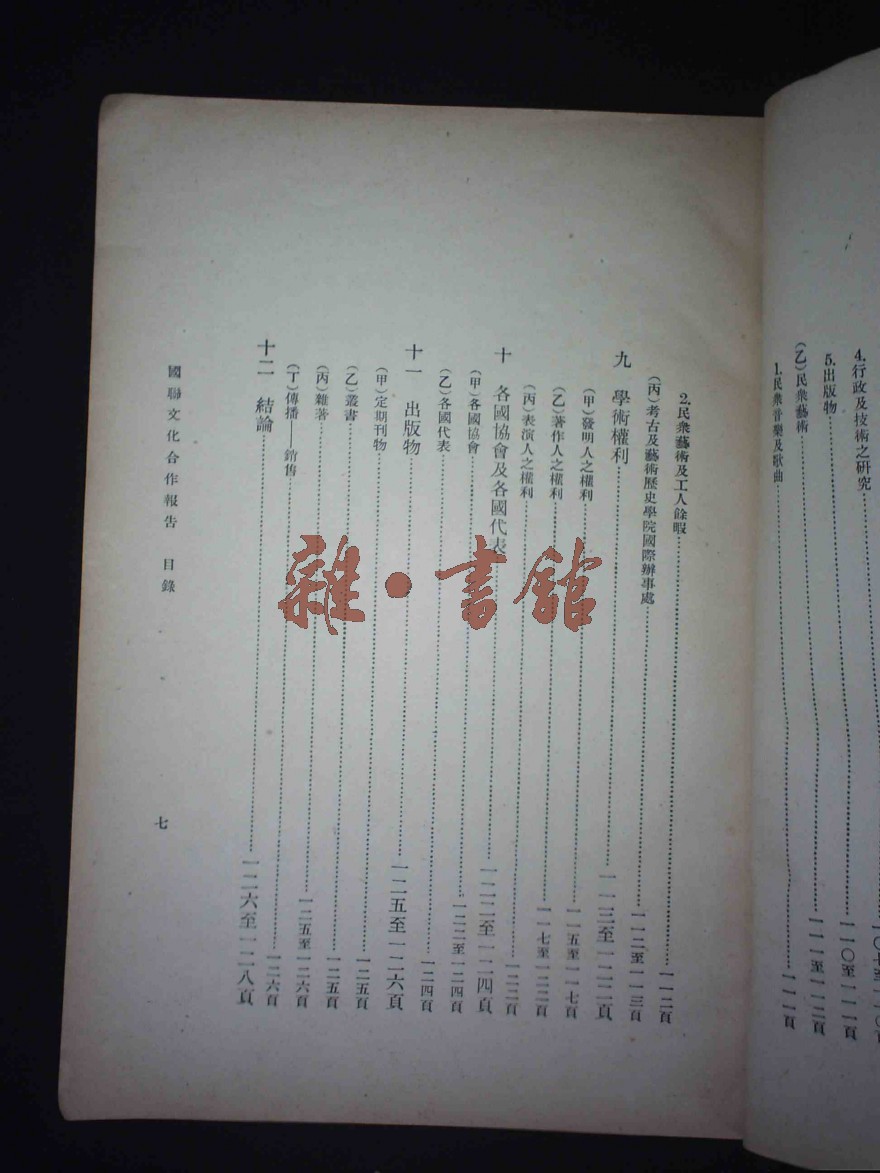 4.行政及技術之研究
5.出版物……一一〇至一一一頁
(乙)民衆藝術……一一一至一一二頁
1.民衆音樂及歌曲……一一一頁
2.民衆藝術及工人餘暇……一一二頁
(丙)考古及藝術歷史學院國際辦事處……一一二至一一三頁
九 學術權利……一一三至一二二頁
(甲)發明人之權利……一一五至一一七頁
(乙)著作人之權利……一一七至一二二頁
(丙)表演人之權利……一二二頁
十 各國協會及各國代表……一二二至一二四頁
(甲)各國協會……一二二至一二四頁
(乙)各國代表……一二四頁
十一 出版物……一二五至一二六頁
(甲)定期刊物……一二五頁
(乙)叢書……一二五頁
(丙)雜著……一二五至一二六頁
(丁)傳播——銷售……一二六頁
十二 結論……一二六至一二八頁
國聯文化合作報告 目錄
七
雜·書館